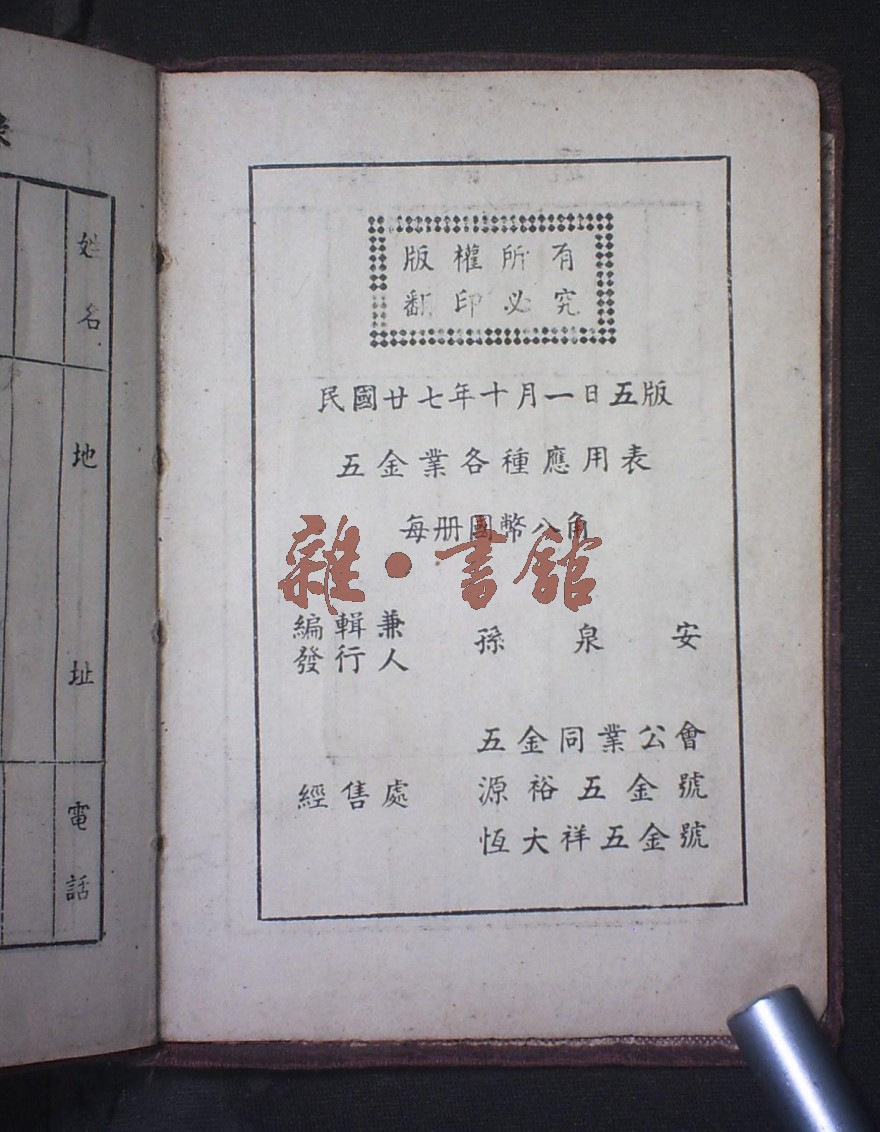 姓名
地址
電話
版權所有
翻印必究
民國廿七年十月一日五版
五金業各種應用表
每册國幣八角
雜·書館
編輯兼
發行人
孫泉安
經售處
五金同業公會
源裕五金號
恆大祥五金號